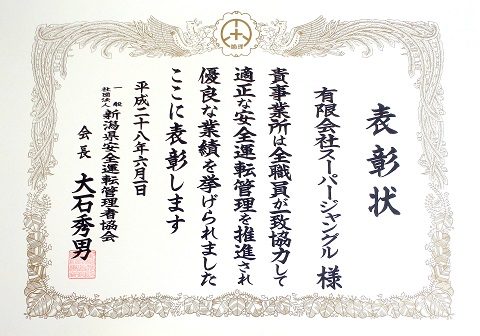 表彰状
有限会社スーパージャングル 様
貴事業所は全職員が一致協力して
適正な安全運転管理を推進され
優良な業績を挙げられました
ここに表彰します
平成二十八年六月二日
一般社団法人 新潟県安全運転管理者協会
会長 大石秀男